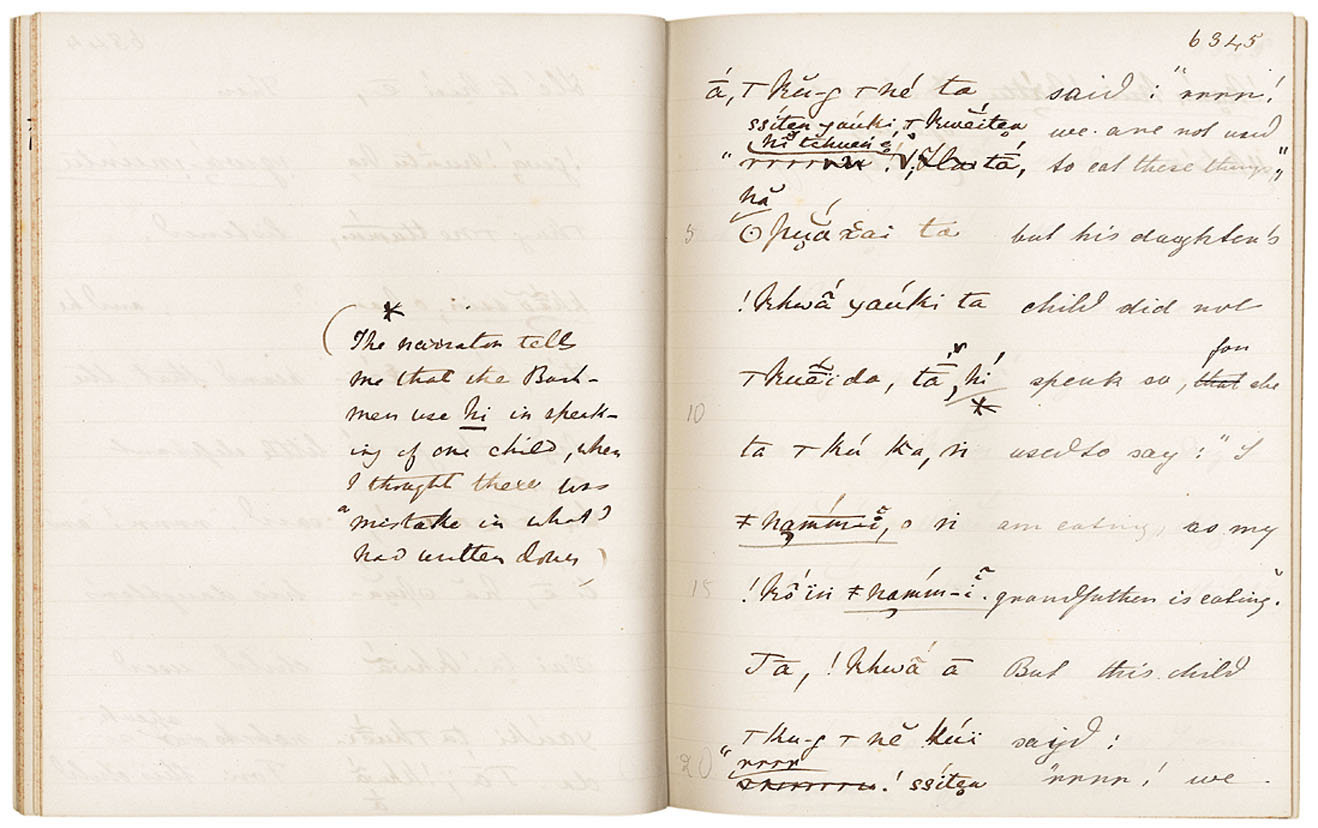 *
(The narrator tells
me that the Bush-
men use hi in speak-
ing of one child, when
I thought there was
a mistake in what I
had written down)
6345
ā́, ⊤kŭ-g ⊤né ta said: "rrrrr!
ssíten yaúki ⊤kwéiten we are not used
to eat these things,"
hă
5 ʘpuắxai ta but his daughter's
!khwā́ yaúki ta child did not
for
⊤kuếïda, tā, hí speak so, that she
*
10
ta ⊤kú ka, ń used to say: "I
≠hamm-ĭ, o ń am eating, as my
15 !kṓïń ≠hamm-ĭ. grandfather is eating."
Tā, !khwā́ ā But this child
⊤ku-g ⊤nĕ kúï sayd:
"rrrr
20 ! ssíten "rrrrr! we